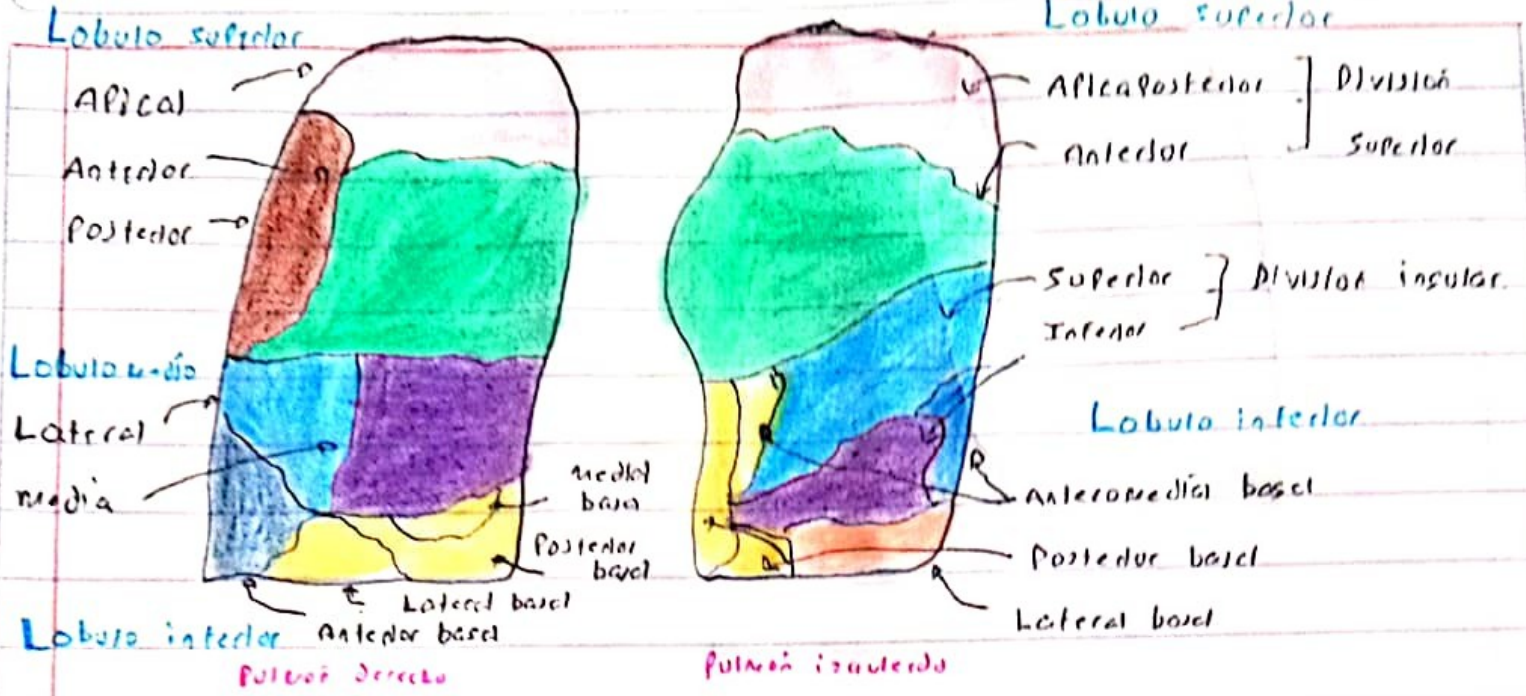 Lobulo superior
Apical
Anterior
Posterior
Lobulo medio
Lateral
media
medial
basal
Posterior
basal
Lateral basal
Anterior basal
Lobulo inferior
Pulmón derecho
Lobulo superior
Apicaposterior
División
Anterior
Superior
Superior
División ingular
Inferior
Lobulo inferior
Anteromedial basal
Posterior basal
Lateral basal
Pulmón izquierdo